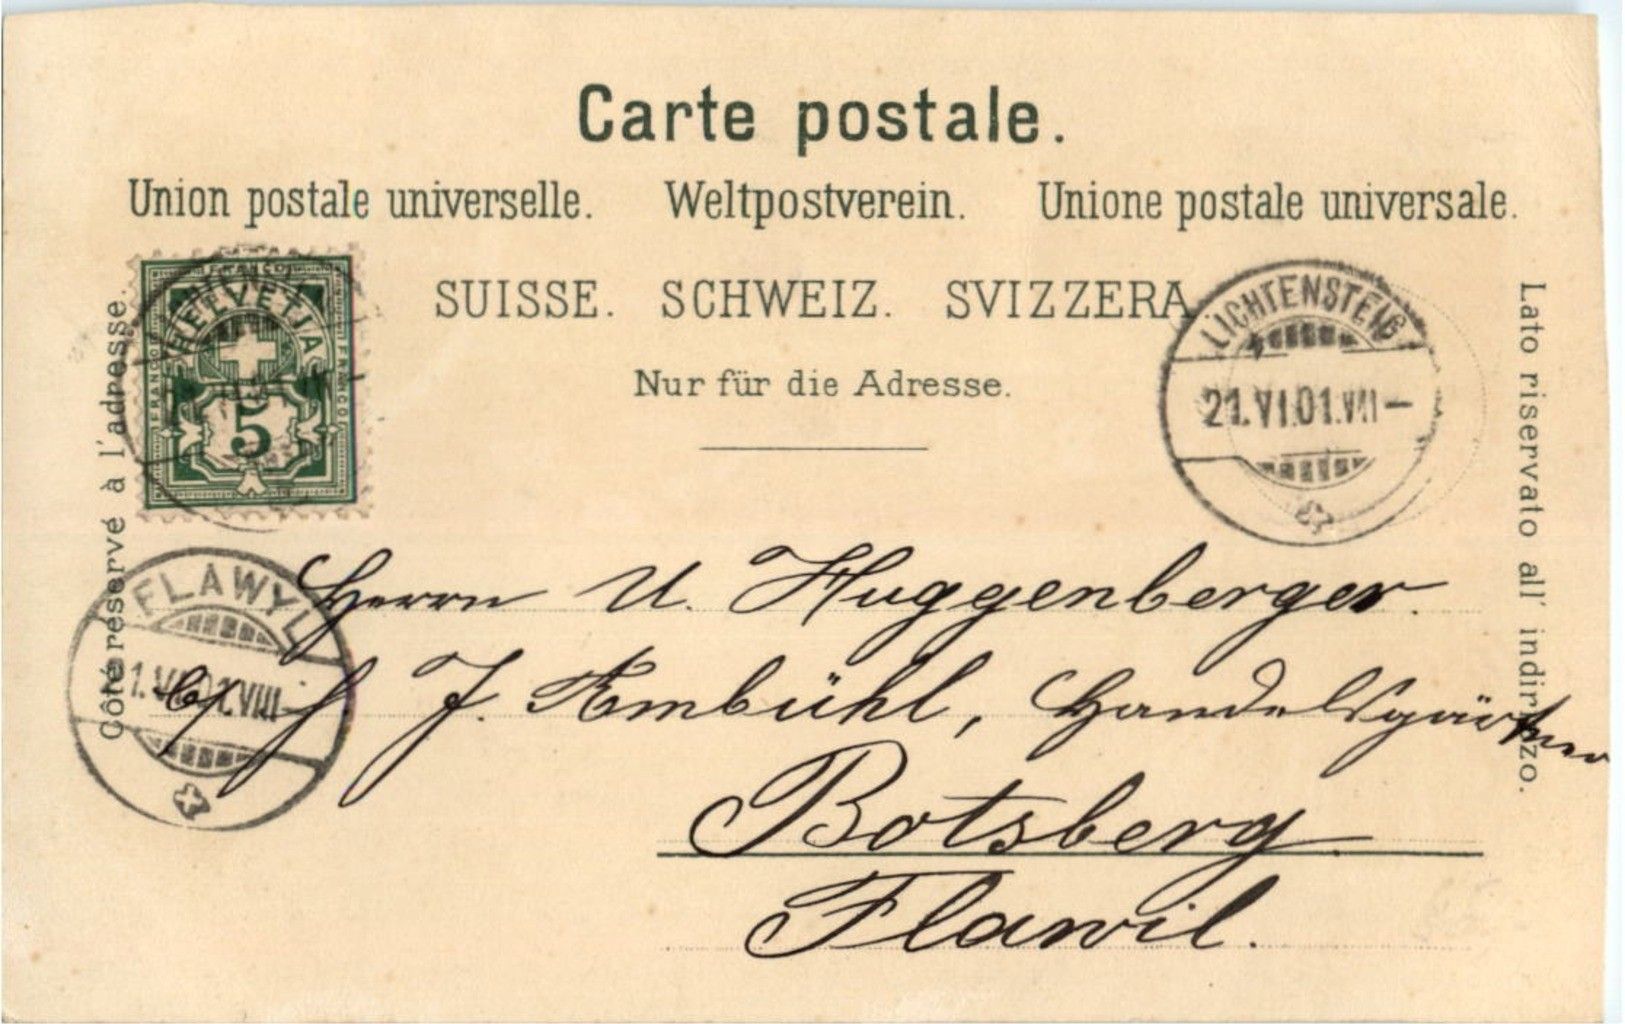 Carte postale.
Union postale universelle. Weltpostverein. Unione postale universale.
SUISSE. SCHWEIZ. SVIZZERA
Nur für die Adresse.
Côté réservé à l'adresse.
Lato riservato all' indirizzo.
FRANCO
HELVETIA
FRANCO
FRANCO
5
LICHTENSTEIG
21.VI.01.VIII—
FLAWYL
VIII
Herrn U. Huggenberger.
b/ H. J. Ambühl, Handelsgärtner
Botsberg.
Flawil.